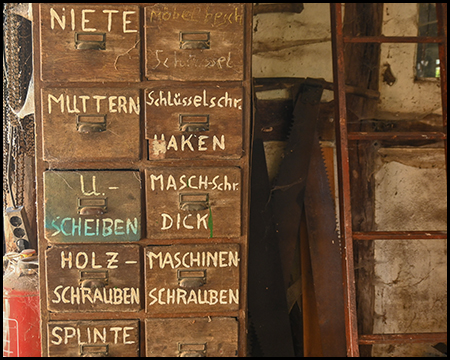 NIETE
Möbel
Schlüssel
MUTTERN
Schlüsselschr.
HAKEN
U.-
SCHEIBEN
MASCH-Schr.
DICK
HOLZ-
SCHRAUBEN
MASCHINEN
SCHRAUBEN
SPLINTE